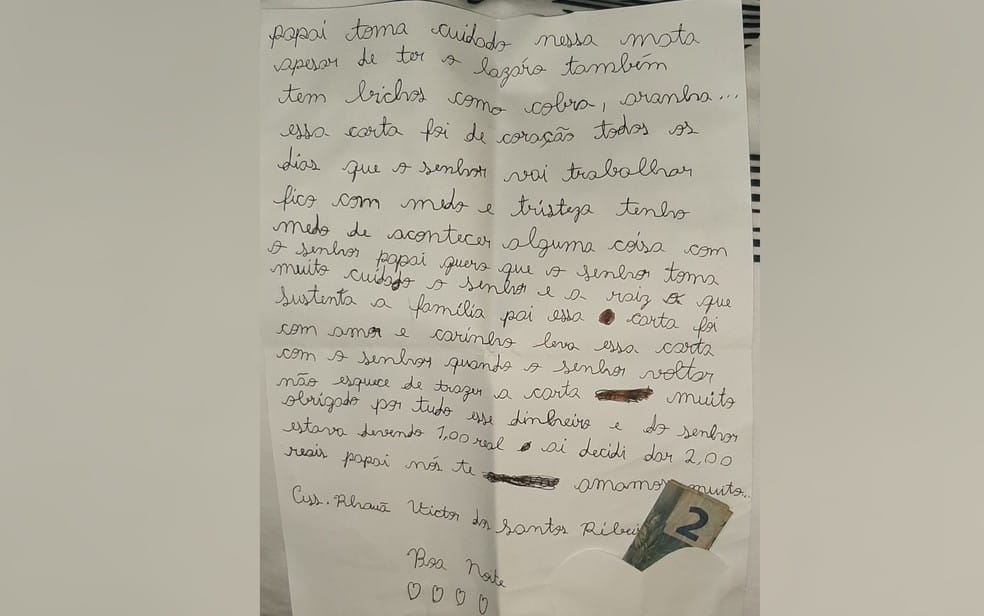 papai toma cuidado nessa mata
apesar de ter o lazáro também
tem bichos como cobra, aranha...
essa carta foi de coração todos os
dias que o senhor vai trabalhar
fico com medo e tristeza tenho
medo de acontecer alguma coisa com
o senhor papai quero que o senhor toma
muito cuidado o senhor e a raiz que
sustenta a família pai essa carta foi
com amor e carinho leva essa carta
com o senhor quando o senhor voltar
não esquece de trazer a carta muito
obrigado por tudo esse dinheiro e do senhor
estava devendo 1,00 real ai decidi dar 2,00
reais papai nós te amamos muito...
Ass. Rhauã Victor dos santos Ribei
Boa Noite
2